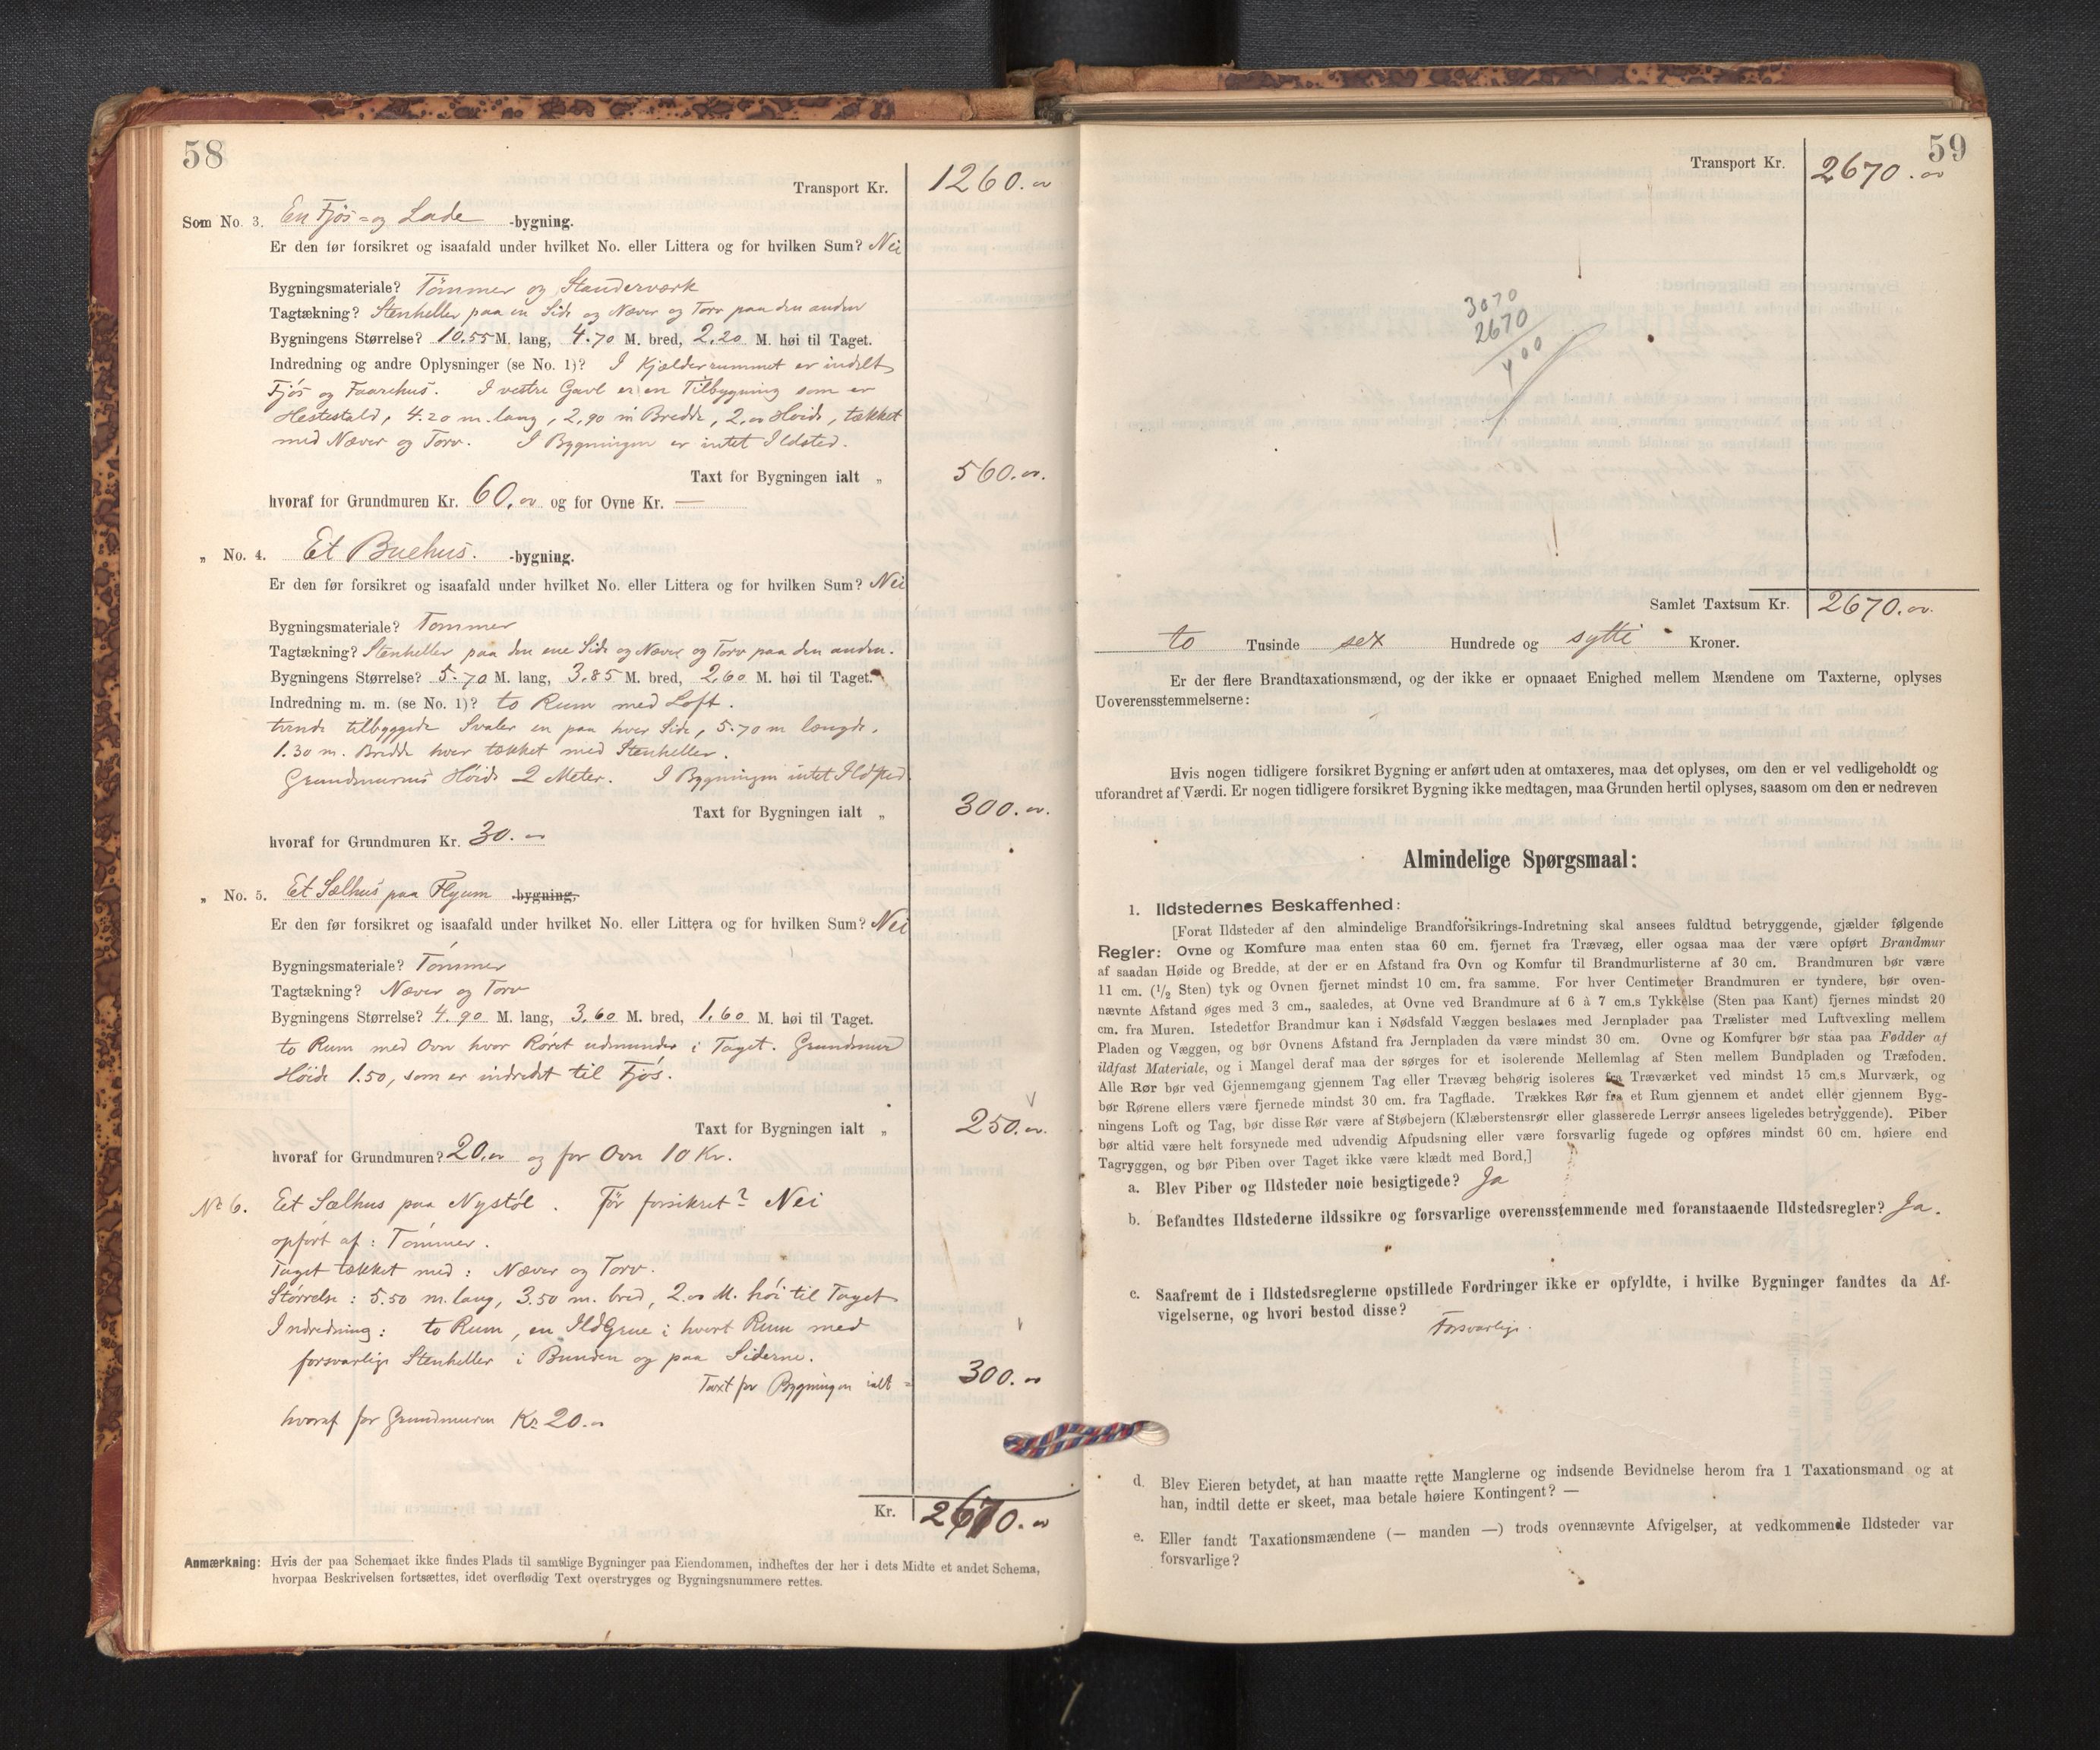 58
Transport Kr. 1260.oo
Som No. 3. En Fjøs- og Lade -bygning.
Er den før forsikret og isaafald under hvilket No. eller Littera og for hvilken Sum? Nei
Bygningsmateriale? Tömmer og Standerværk
Tagtækning? Stenheller paa en Side og Næver og Torv paa den anden
Bygningens Størrelse? 10.55 M. lang, 4.70 M. bred, 2,20 M. høi til Taget.
Indredning og andre Oplysninger (se No. 1)? I Kjælderrummet er indelt
Fjös og Faarehus. I vestre Gavl er en Tilbygning som er
Hestestald, 4.20 m. lang, 2,90 m Bredde, 2,oo Höide, tækket
med Næver og Torv. I Bygningen er intet Ildsted.
Taxt for Bygningen ialt „ 560.oo.
hvoraf for Grundmuren Kr. 60,oo og for Ovne Kr. —
„ No. 4. Et Buehus. -bygning.
Er den før forsikret og isaafald under hvilket No. eller Littera og for hvilken Sum? Nei
Bygningsmateriale? Tömmer
Tagtækning? Stenheller paa den ene Side og Næver og Torv paa den anden.
Bygningens Størrelse? 5.70 M. lang, 3,85 M. bred, 2,60 M. høi til Taget.
Indredning m. m. (se No. 1)? to Rum med Loft.
tvende tilbyggede Svaler en paa hver Side, 5.70 m længde,
1.30 m. Bredde hver tækket med Stenheller.
Grundmurens Höide 2 Meter. I Bygningen intet Ildsted.
Taxt for Bygningen ialt „ 300.oo.
hvoraf for Grundmuren Kr. 30.oo
„ No. 5. Et Sælhus paa Flyum -bygning.
Er den før forsikret og isaafald under hvilket No. eller Littera og for hvilken Sum? Nei
Bygningsmateriale? Tömmer
Tagtækning? Næver og Torv
Bygningens Størrelse? 4.90 M. lang, 3,60 M. bred, 1.60 M. høi til Taget.
to Rum med Ovn hvor Röret udmunder i Taget. Grundmur
Höide 1.50, som er indredet til Fjös.
Taxt for Bygningen ialt „ 250.oo.
hvoraf for Grundmuren? 20,oo og for Ovn 10 Kr.
No 6. Et Sælhus paa Nystöl. För forsikret? Nei
opfört af: Tömmer.
Taget tækket med: Næver og Torv.
Störrelse: 5.50 m. lang, 3.50 m. bred, 2.oo M. höi til Taget
Indredning: to Rum, en IldGrue i hvert Rum med
forsvarlige Stenheller i Bunden og paa Siderne.
Taxt for Bygningen ialt = 300.oo
hvoraf for Grundmuren Kr 20.oo
Kr. 2670.oo
Anmærkning: Hvis der paa Schemaet ikke findes Plads til samtlige Bygninger paa Eiendommen, indheftes der her i dets Midte et andet Schema,
hvorpaa Beskrivelsen fortsættes, idet overflødig Text overstryges og Bygningsnummere rettes.
59
Transport Kr. 2670.oo
3070
2670
400
Samlet Taxtsum Kr. 2670.oo.
to Tusinde sex Hundrede og sytti Kroner.
Er der flere Brandtaxationsmænd, og der ikke er opnaaet Enighed mellem Mændene om Taxterne, oplyses
Uoverensstemmelserne:
Hvis nogen tidligere forsikret Bygning er anført uden at omtaxeres, maa det oplyses, om den er vel vedligeholdt og
uforandret af Værdi. Er nogen tidligere forsikret Bygning ikke medtagen, maa Grunden hertil oplyses, saasom om den er nedreven
Almindelige Spørgsmaal:
1. Ildstedernes Beskaffenhed:
[Forat Ildsteder af den almindelige Brandforsikrings-Indretning skal ansees fuldtud betryggende, gjælder følgende
Regler: Ovne og Komfure maa enten staa 60 cm. fjernet fra Trævæg, eller ogsaa maa der være opført Brandmur
af saadan Høide og Bredde, at der er en Afstand fra Ovn og Komfur til Brandmurlisterne af 30 cm. Brandmuren bør være
11 cm. (1/2 Sten) tyk og Ovnen fjernet mindst 10 cm. fra samme. For hver Centimeter Brandmuren er tyndere, bør oven-
nævnte Afstand øges med 3 cm., saaledes, at Ovne ved Brandmure af 6 à 7 cm.s Tykkelse (Sten paa Kant) fjernes mindst 20
cm. fra Muren. Istedetfor Brandmur kan i Nødsfald Væggen beslaaes med Jernplader paa Trælister med Luftvexling mellem
Pladen og Væggen, og bør Ovnens Afstand fra Jernpladen da være mindst 30 cm. Ovne og Komfurer bør staa paa Fødder af
ildfast Materiale, og i Mangel deraf maa der sørges for et isolerende Mellemlag af Sten mellem Bundpladen og Træfoden.
Alle Rør bør ved Gjennemgang gjennem Tag eller Trævæg behørig isoleres fra Træværket ved mindst 15 cm.s Murværk, og
bør Rørene ellers være fjernede mindst 30 cm. fra Tagflade. Trækkes Rør fra et Rum gjennem et andet eller gjennem Byg-
ningens Loft og Tag, bør disse Rør være af Støbejern (Klæberstensrør eller glasserede Lerrør ansees ligeledes betryggende). Piber
bør altid være helt forsynede med udvendig Afpudsning eller være forsvarlig fugede og opføres mindst 60 cm. høiere end
Tagryggen, og bør Piben over Taget ikke være klædt med Bord,]
a. Blev Piber og Ildsteder nøie besigtigede? Ja
b. Befandtes Ildstederne ildssikre og forsvarlige overensstemmende med foranstaaende Ildstedsregler? Ja.
c. Saafremt de i Ildstedsreglerne opstillede Fordringer ikke er opfyldte, i hvilke Bygninger fandtes da Af-
vigelserne, og hvori bestod disse?
Forsvarlige.
d. Blev Eieren betydet, at han maatte rette Manglerne og indsende Bevidnelse herom fra 1 Taxationsmand og at
han, indtil dette er skeet, maa betale høiere Kontingent? —
e. Eller fandt Taxationsmændene (— manden —) trods ovennævnte Afvigelser, at vedkommende Ildsteder var
forsvarlige?